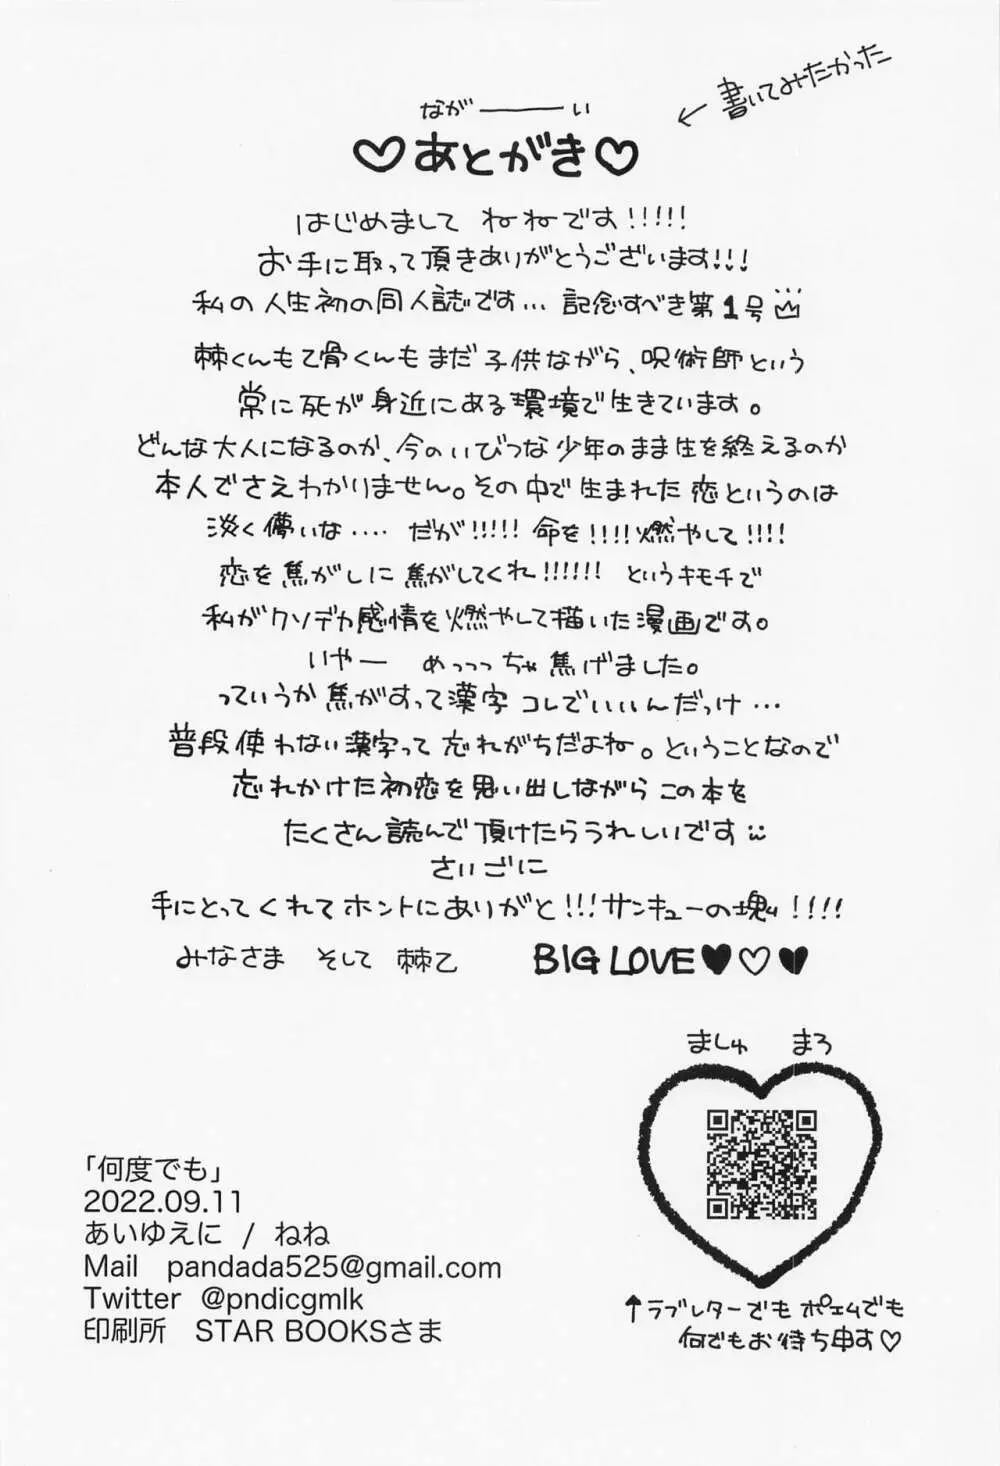 ← 書いてみたかった
なが―――い
♡あとがき♡
はじめまして ねねです!!!!!
お手に取って頂きありがとうございます!!!
私の人生初の同人誌です… 記念すべき第1号
棘くんも乙骨くんもまだ子供ながら、呪術師という
常に死が身近にある環境で生きています。
どんな大人になるのか、今のいびつな少年のまま生を終えるのか
本人でさえわかりません。その中で生まれた恋というのは
淡く儚いな‥‥ だが!!!!! 命を!!!!燃やして!!!!
恋を焦がしに焦がしてくれ!!!!!! というキモチで
私がクソデカ感情を燃やして描いた漫画です。
いやー めっっっちゃ焦げました。
っていうか焦がすって漢字コレでいいんだっけ…
普段使わない漢字って忘れがちだよね。ということなので
忘れかけた初恋を思い出しながらこの本を
たくさん読んで頂けたらうれしいです
さいごに
手にとってくれてホントにありがと!!!サンキューの塊!!!!
みなさま そして 棘乙 BIG LOVE♥♡♥
ましゅ まろ
「何度でも」
2022.09.11
あいゆえに / ねね
Mail pandada525@gmail.com
Twitter @pndicgmlk
印刷所 STAR BOOKSさま
↑ラブレターでもポエムでも
何でもお待ち申す♡